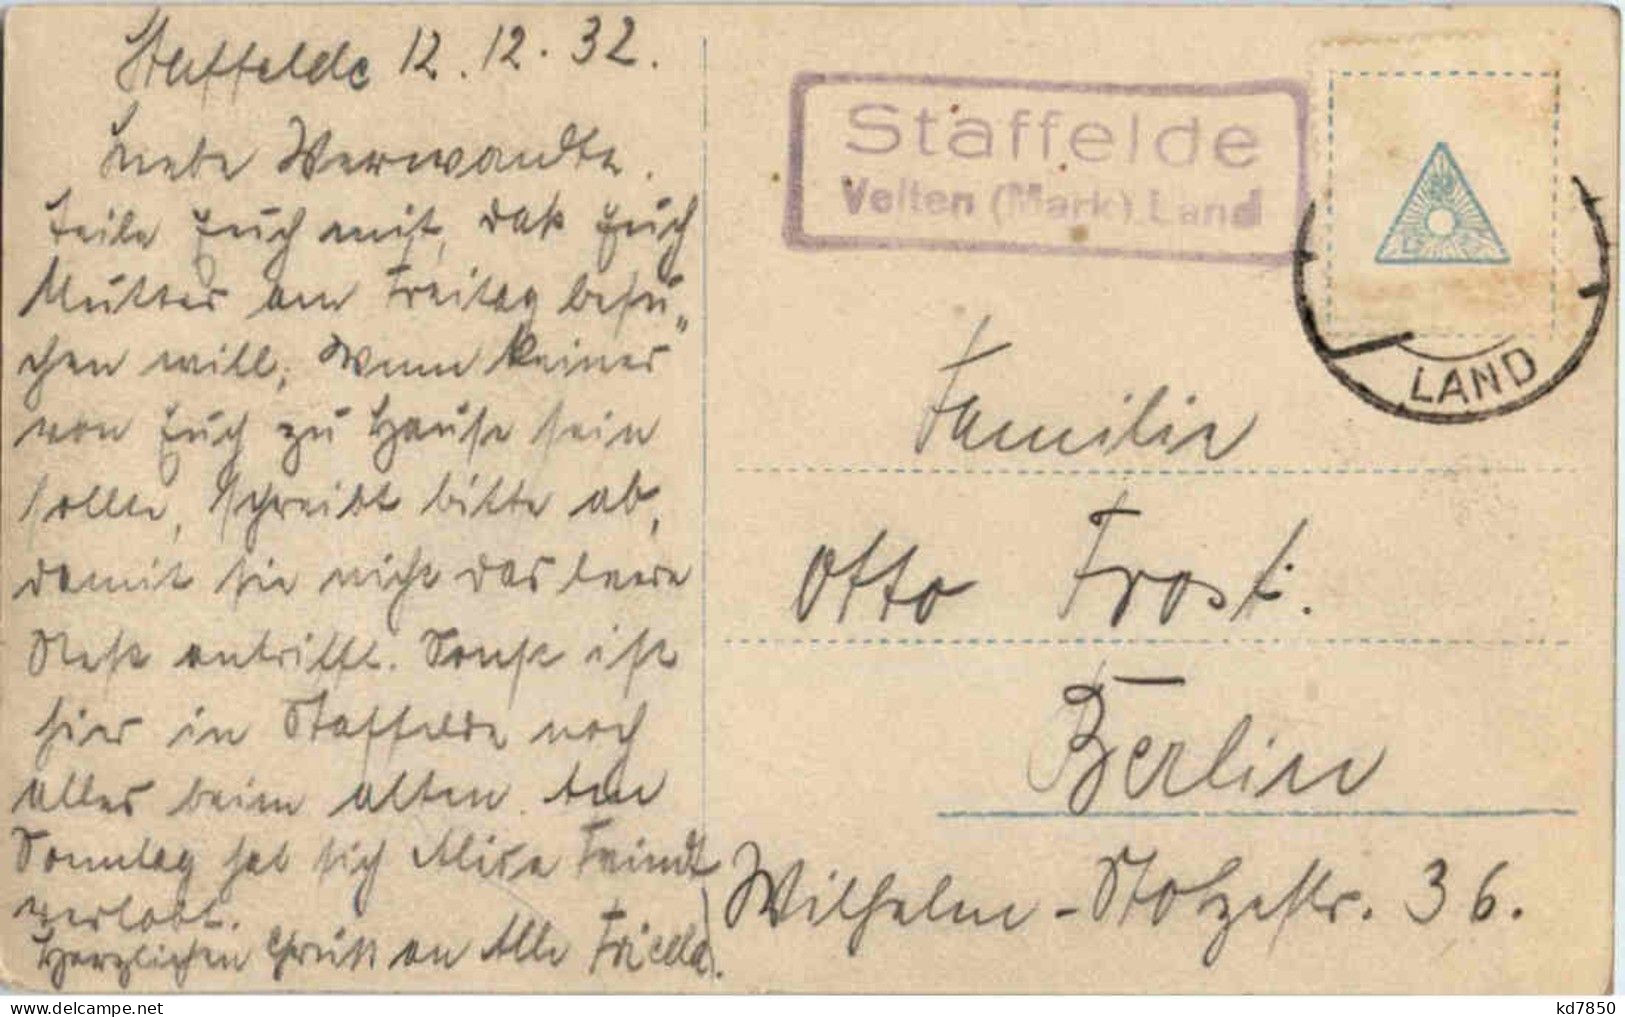 Staffelde 12.12.32.
Liebe Verwandte.
Teile Euch mit, daß Euch
Mutter am Freitag besu„
chen will. Wenn keiner
von Euch zu Hause sein
sollte, schreibt bitte ab,
damit sie nicht das leere
Nest antrifft. Sonst ist
hier in Staffelde noch
alles beim alten. Am
Sonntag hat sich Alice Feindt
verlobt.
Herzlichen Gruß an Alle Frieda.
Staffelde
Velten (Mark) Land
LAND
Familie
Otto Frost.
Berlin
Wilhelm-Stolzestr. 36.
kd7850